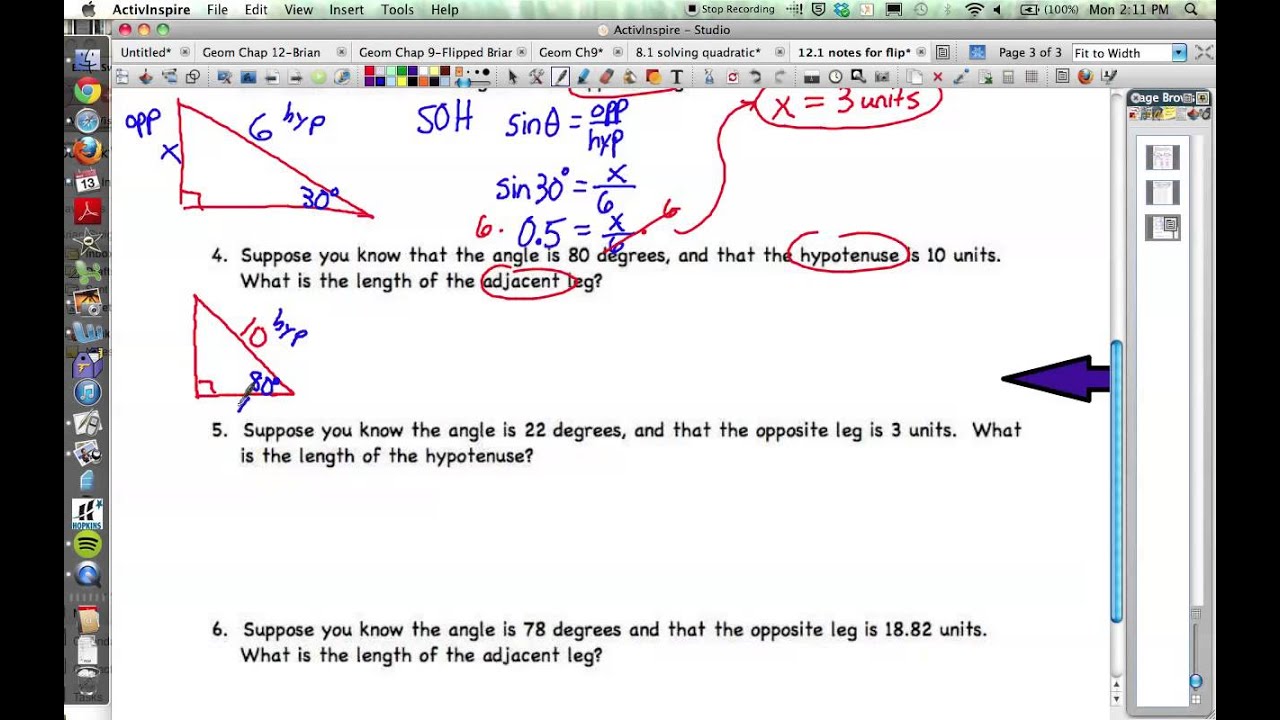 ActivInspire File Edit View Insert Tools Help Stop Recording (100%) Mon 2:11 PM
ActivInspire - Studio
Untitled* Geom Chap 12-Brian Geom Chap 9-Flipped Briar Geom Ch9* 8.1 solving quadratic* 12.1 notes for flip* Page 3 of 3 Fit to Width
age Brow
x = 3 units
opp 6 hyp SOH sinθ = opp/hyp
x
30° sin30° = x/6
6 · 0.5 = x/6 · 6
4. Suppose you know that the angle is 80 degrees, and that the hypotenuse is 10 units.
What is the length of the adjacent leg?
10 hyp
80°
5. Suppose you know the angle is 22 degrees, and that the opposite leg is 3 units. What
is the length of the hypotenuse?
6. Suppose you know the angle is 78 degrees and that the opposite leg is 18.82 units.
What is the length of the adjacent leg?
13
H
HOPKINS
Tasks